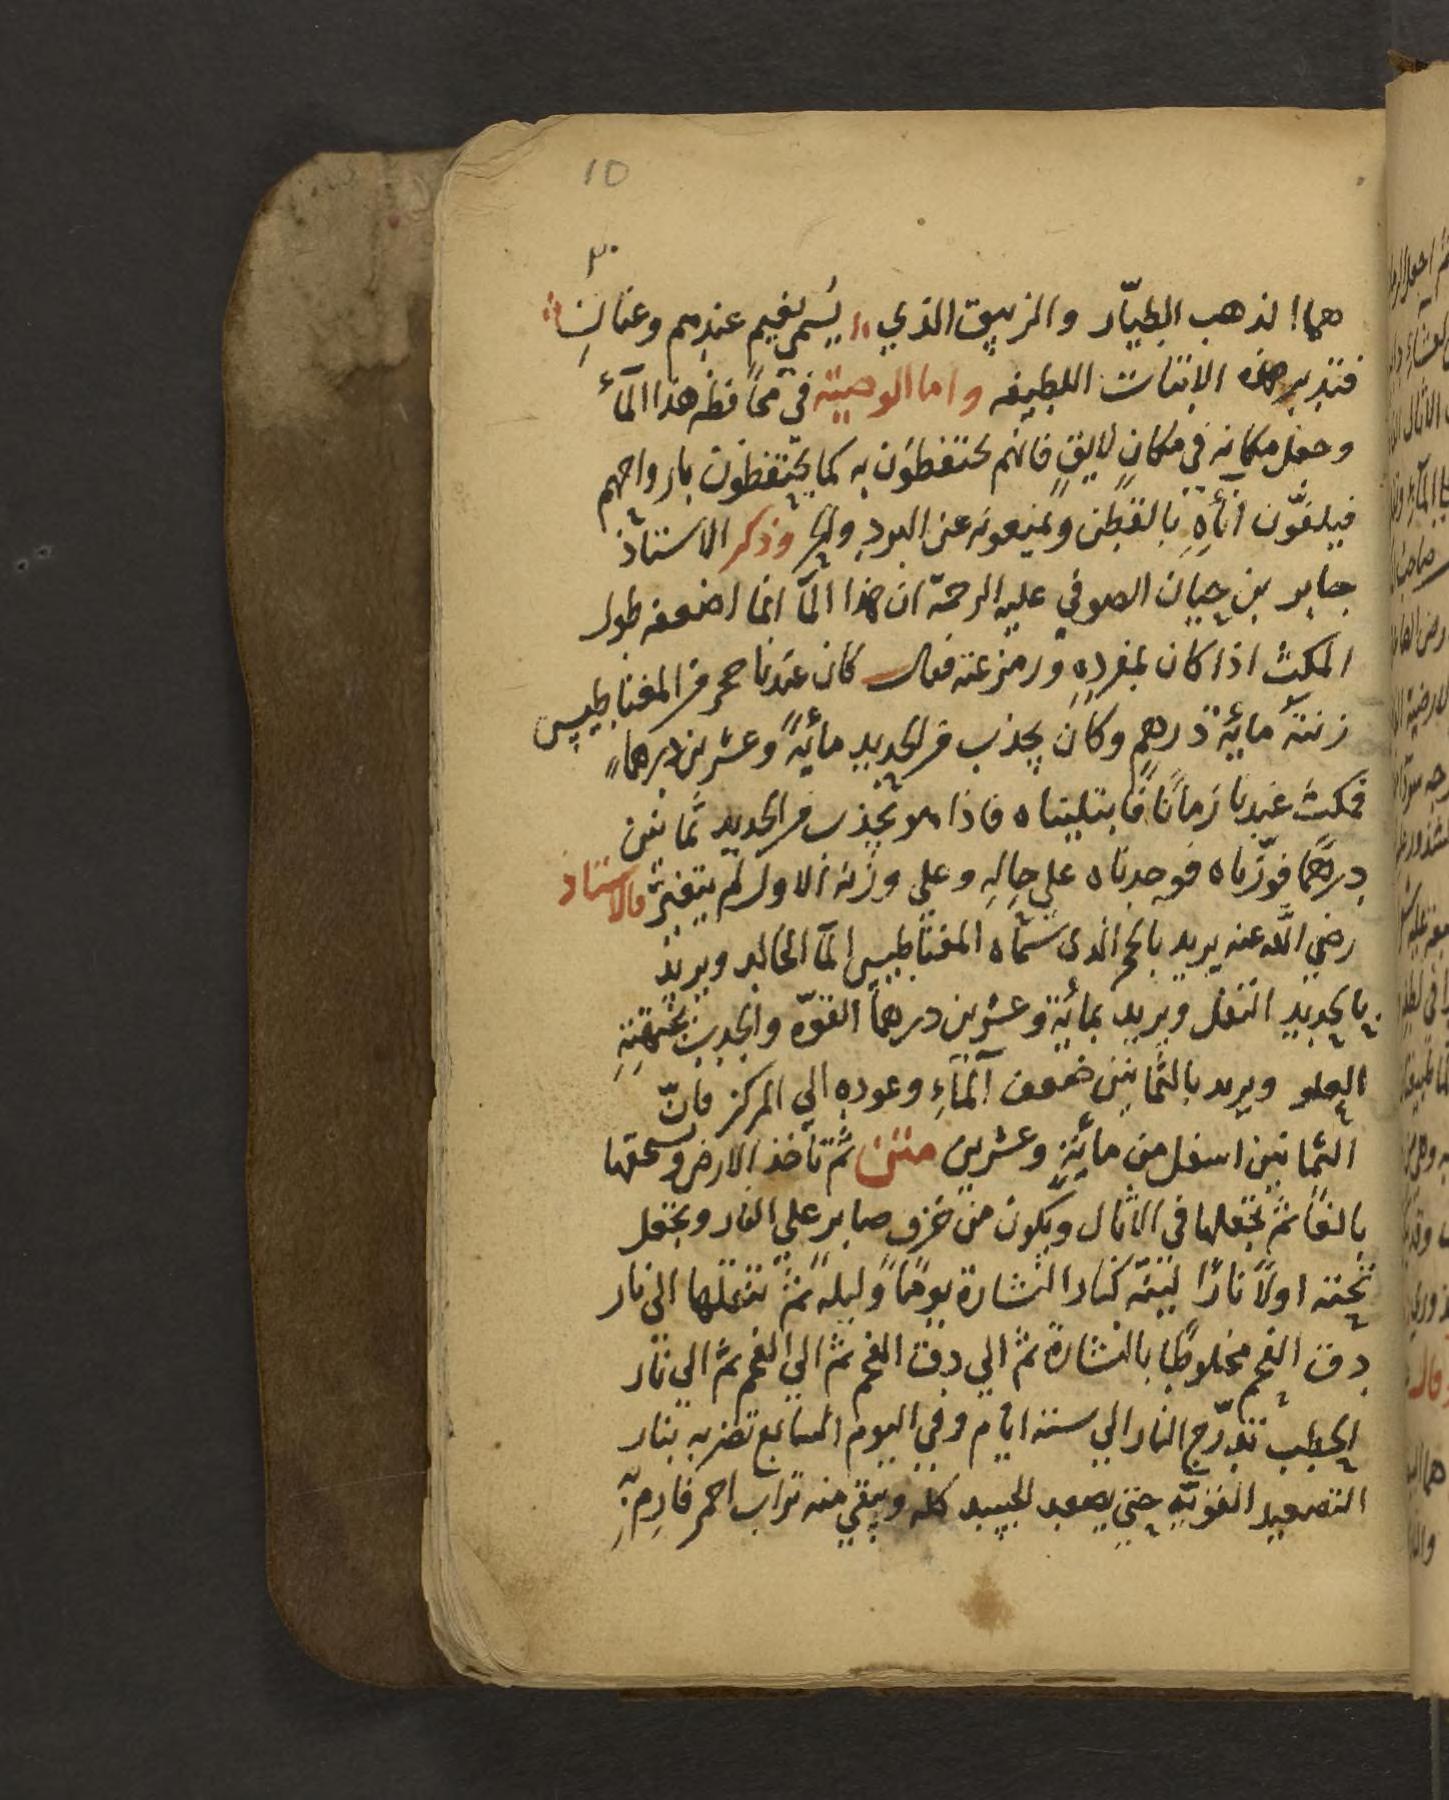 10
٣٠
هما الذهب الطيّار والزيبق الذي يسمي بغيم عندهم وعنانِ
فتدبر هذه الابتات اللطيفه واما الوصيّة في محافظه هذا المآء
وحفظ مكانه في مكانٍ لايقٍ فانهم يحتفظون به كما يحتفظون بارواحهم
فيلفّون انأهِ بالقطن ويمنعونه عن البرد وذكر الاستاذ
جابر بن حيان الصوفي عليه الرحمة ان هذا المآ انما اضعفه طول
المكث اذا كان بمفرده ورمز عنه فقال كان عندنا حجر من المغناطيس
زنته مائة درهم وكان يجذب من الحديد مائةً وعشرين درهماً
فمكث عندنا زماناً فابتليناه فاذا هو يجذب من الحديد ثمانين
درهما فوزّناه فوجدناه علي حالهِ وعلي وزنه الاول لم يتغيّر قال الاستاد
رضي اللّه عنه يريد بالحجر الذي سمّاه المغناطيس المآ الخالد ويريد
بالحديد الثفل ويريد بمائة وعشرين درهماً القوّه والجذب بجهتهِ
العلو ويريد بالثمانين ضعف المآءِ وعوده الي المركز فانّ
الثمانين اسفل من مائةٍ وعشرين متن ثم تأخذ الارض وسحقها
بالغاً ثم تجعلها في الاثال ويكون من خزف صابر علي النار وتجعل
تحته اولاً ناراً ليّنة كنار النشارة يوماً وليله ثم تنقلها الي نار
دق الفحم مخلوطاً بالنشارة ثم الي دق الفحم ثم الي الفحم ثم الي نار
الحطب تدرّج النار الي ستة ايام وفي اليوم السابع تضربه بنار
التصعيد القويّه حتي يصعد الجيد كله ويبقي منه تراب احمر فادمِ بهِ